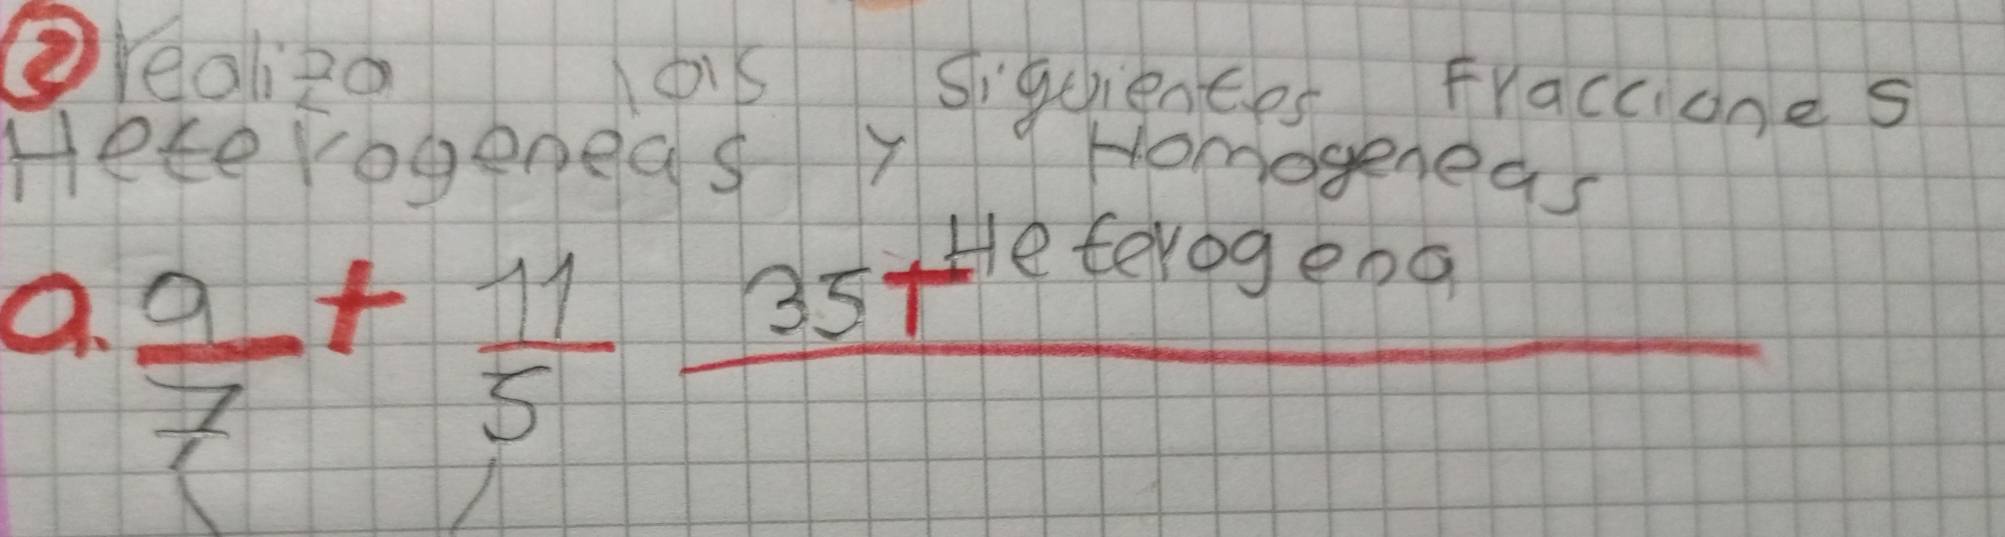 ② realiza las siguientes Fracciones
Heterogeneas y Homogeneas
Heterogena
a. 9/7 + 11/5 35+